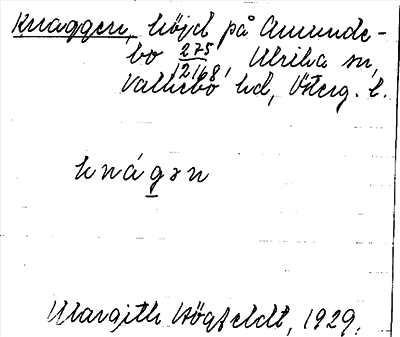 Knaggen, höjd på Amunde-
bo 275/12168, Ulrika sn,
Valkebo hd, Österg. l.
knágən
Margith Högfeldt, 1929.